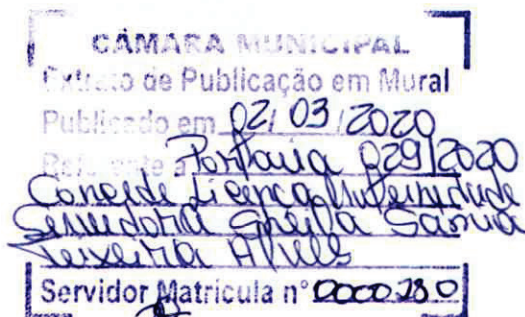 CÂMARA MUNICIPAL
Extrato de Publicação em Mural
Publicado em 02/03/2020
Referente a Portaria 029/2020
Concede Licença Maternidade
Servidora Sheila Samia
Teixeira Alves
Servidor Matricula n° 0000280